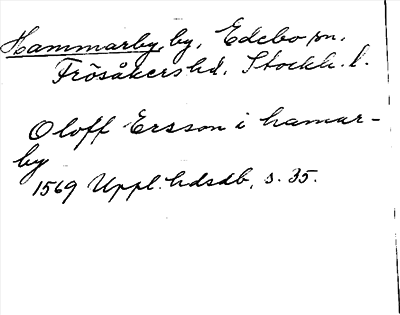 Hammarby, by, Edebo sn,
Frösåkers hd, Stockh. l.
Oloff Ersson i hamar-
by
1569 Uppl. hdsdb, s. 35.